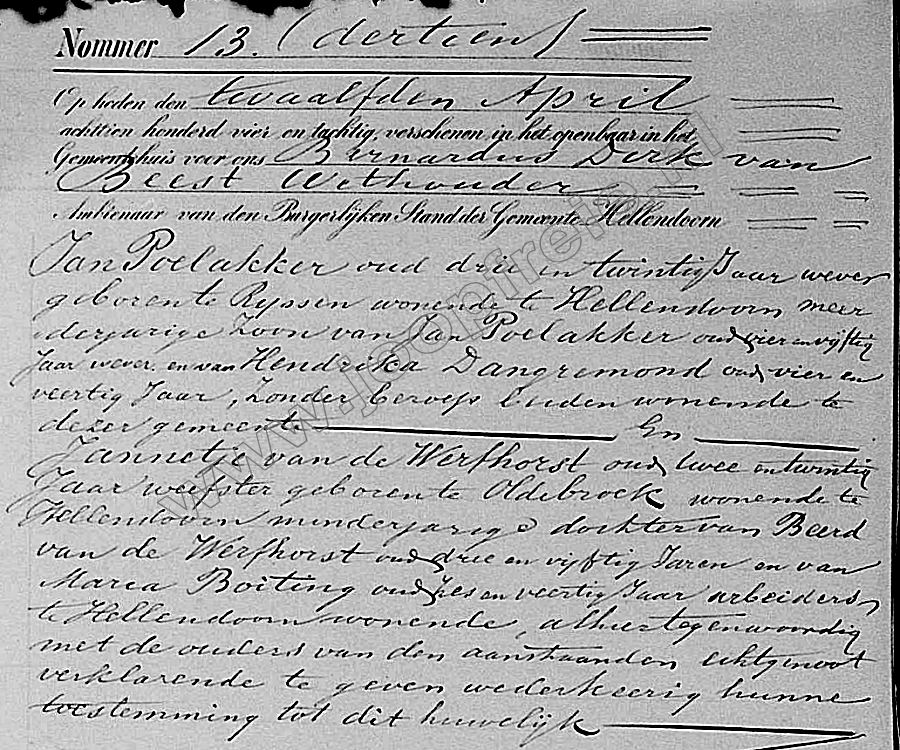 Nommer 13. (dertien)
Op heden den twaalfden April
achttien honderd vier en tachtig, verschenen in het openbaar in het
Gemeentehuis voor ons Bernardus Dirk van
Beest Wethouder
Ambtenaar van den Burgerlijken Stand der Gemeente Hellendoorn
Jan Poelakker oud drie en twintig Jaar wever
geboren te Ryssen wonende te Hellendoorn meer
derjarige Zoon van Jan Poelakker oud vier en vijftig
Jaar wever en van Hendrika Dangremond oud vier en
veertig Jaar, zonder beroep beiden wonende te
dezer gemeente En
Jannetje van de Werfhorst oud twee en twintig
Jaar weefster geboren te Oldebroek wonende te
Hellendoorn minderjarige dochter van Beerd
van de Werfhorst oud drie en vijftig Jaren en van
Maria Boiting oud zes en veertig Jaar arbeiders,
te Hellendoorn wonende, alhier tegenwoordig
met de ouders van den aanstaanden echtgenoot
verklarende te geven wederkeerig hunne
toestemming tot dit huwelijk
www.joopfreije.nl